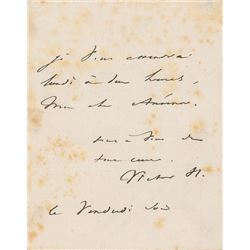 je vous attendrai
lundi à deux heures,
Mon cher
suis à vous de
tout cœur.
Victor H.
ce Vendredi soir